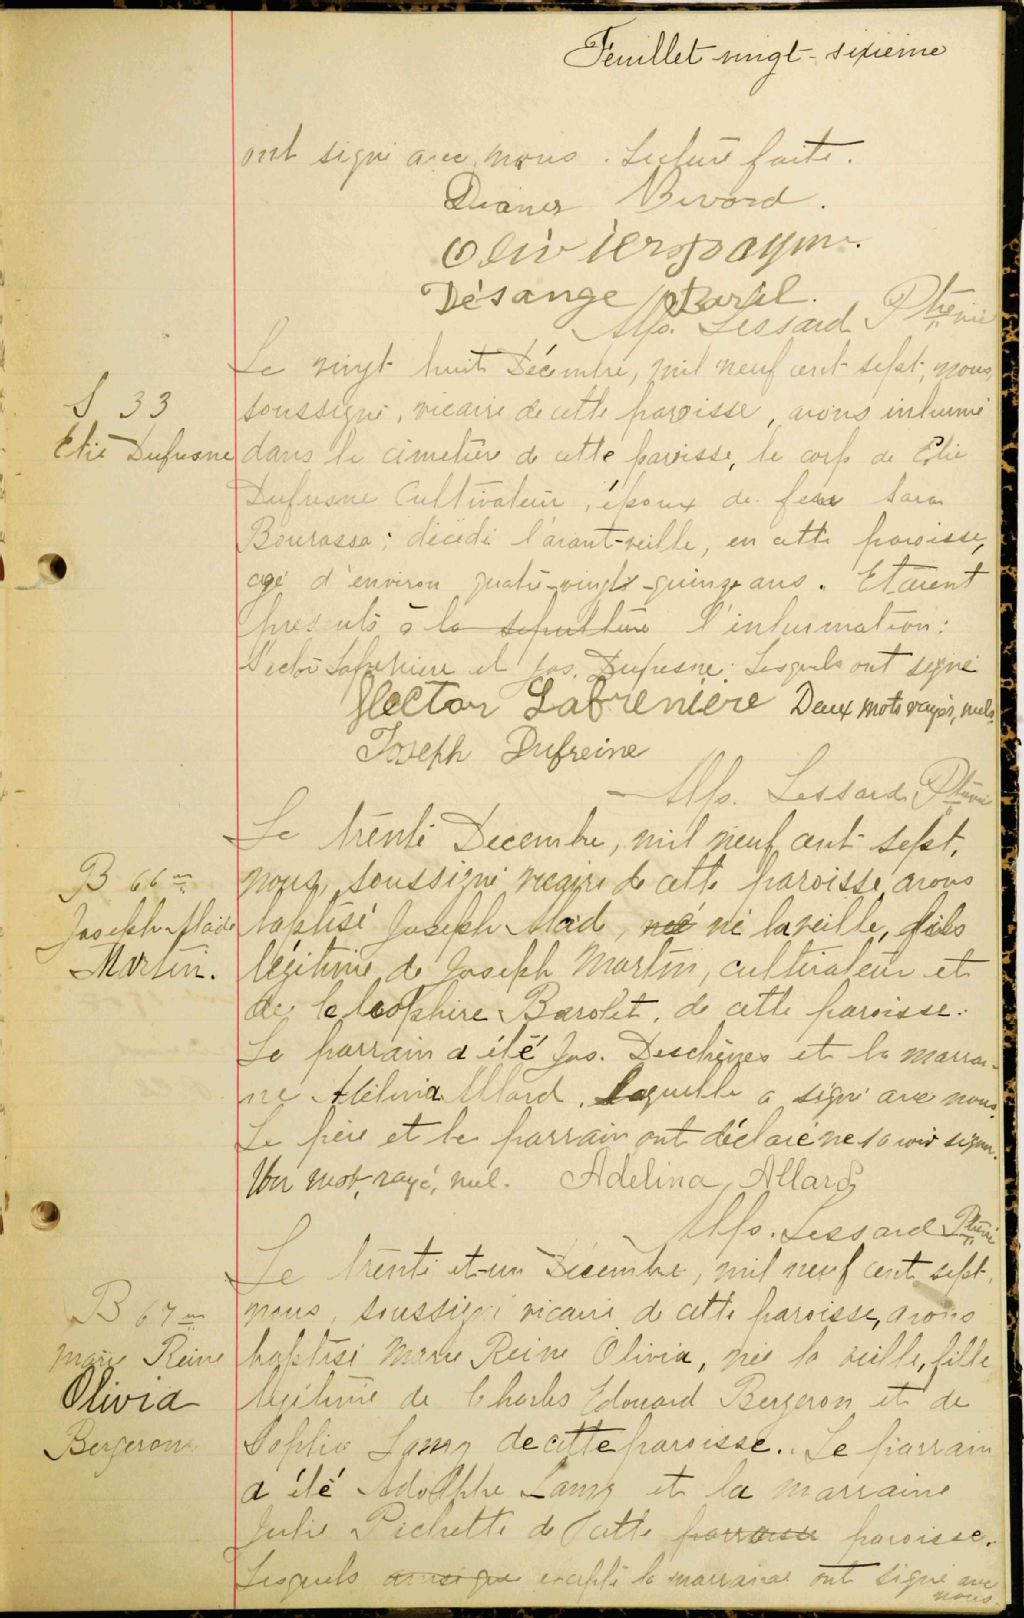 Feuillet vingt-sixième
ont signé avec nous. Lecture faite.
Bivard.
Olivier Paym
Désange Baril.
Alp. Lessard Ptre vic
Le vingt huit Décembre, mil neuf cent sept, nous,
S 33
soussigné, vicaire de cette paroisse, avons inhumé
Elie Dufresne
dans le cimetière de cette paroisse, le corp de Elie
Dufresne Cultivateur, époux de feue Sara
Bourassa; décédé l'avant-veille, en cette paroisse,
agé d'environ quatre-vingt-quinze ans. Etaient
présents à la sepulture l'inhumation:
Hector Lafrenière et Jos. Dufresne: Lesquels ont signé
Hector Lafrenière Deux mots rayés, nuls.
Joseph Dufreine
Alp. Lessard Ptre vic
Le trente Decembre, mil neuf cent sept,
B 66me
nous, soussigné vicaire de cette paroisse avons
Joseph Maide
baptisé Joseph Maid, né né la veille, fils
Martin.
légitime de Joseph Martin, cultivateur et
de Cleophire Barolet, de cette paroisse.
Le parrain a été Jos. Deschênes et la marrai-
ne Adélina Allard, laquelle a signé avec nous.
Le père et le parrain ont déclaré ne savoir signer.
Un mot, rayé, nul. Adelina Allard
Alp. Lessard Ptre vic
Le trente et-un Décembre, mil neuf cent sept,
B 67me
nous, soussigné vicaire de cette paroisse, avons
Marie Reine
baptisé Marie Reine Olivia, née la veille, fille
Olivia
légitime de Charles Edouard Bergeron et de
Bergeron
Sophie Lamy de cette paroisse. Le parrain
a été Adolphe Lamy et la marraine
Julie Pichette de Cette parroisse paroisse.
Lesquels excepté la marraine ont signé avec
nous.